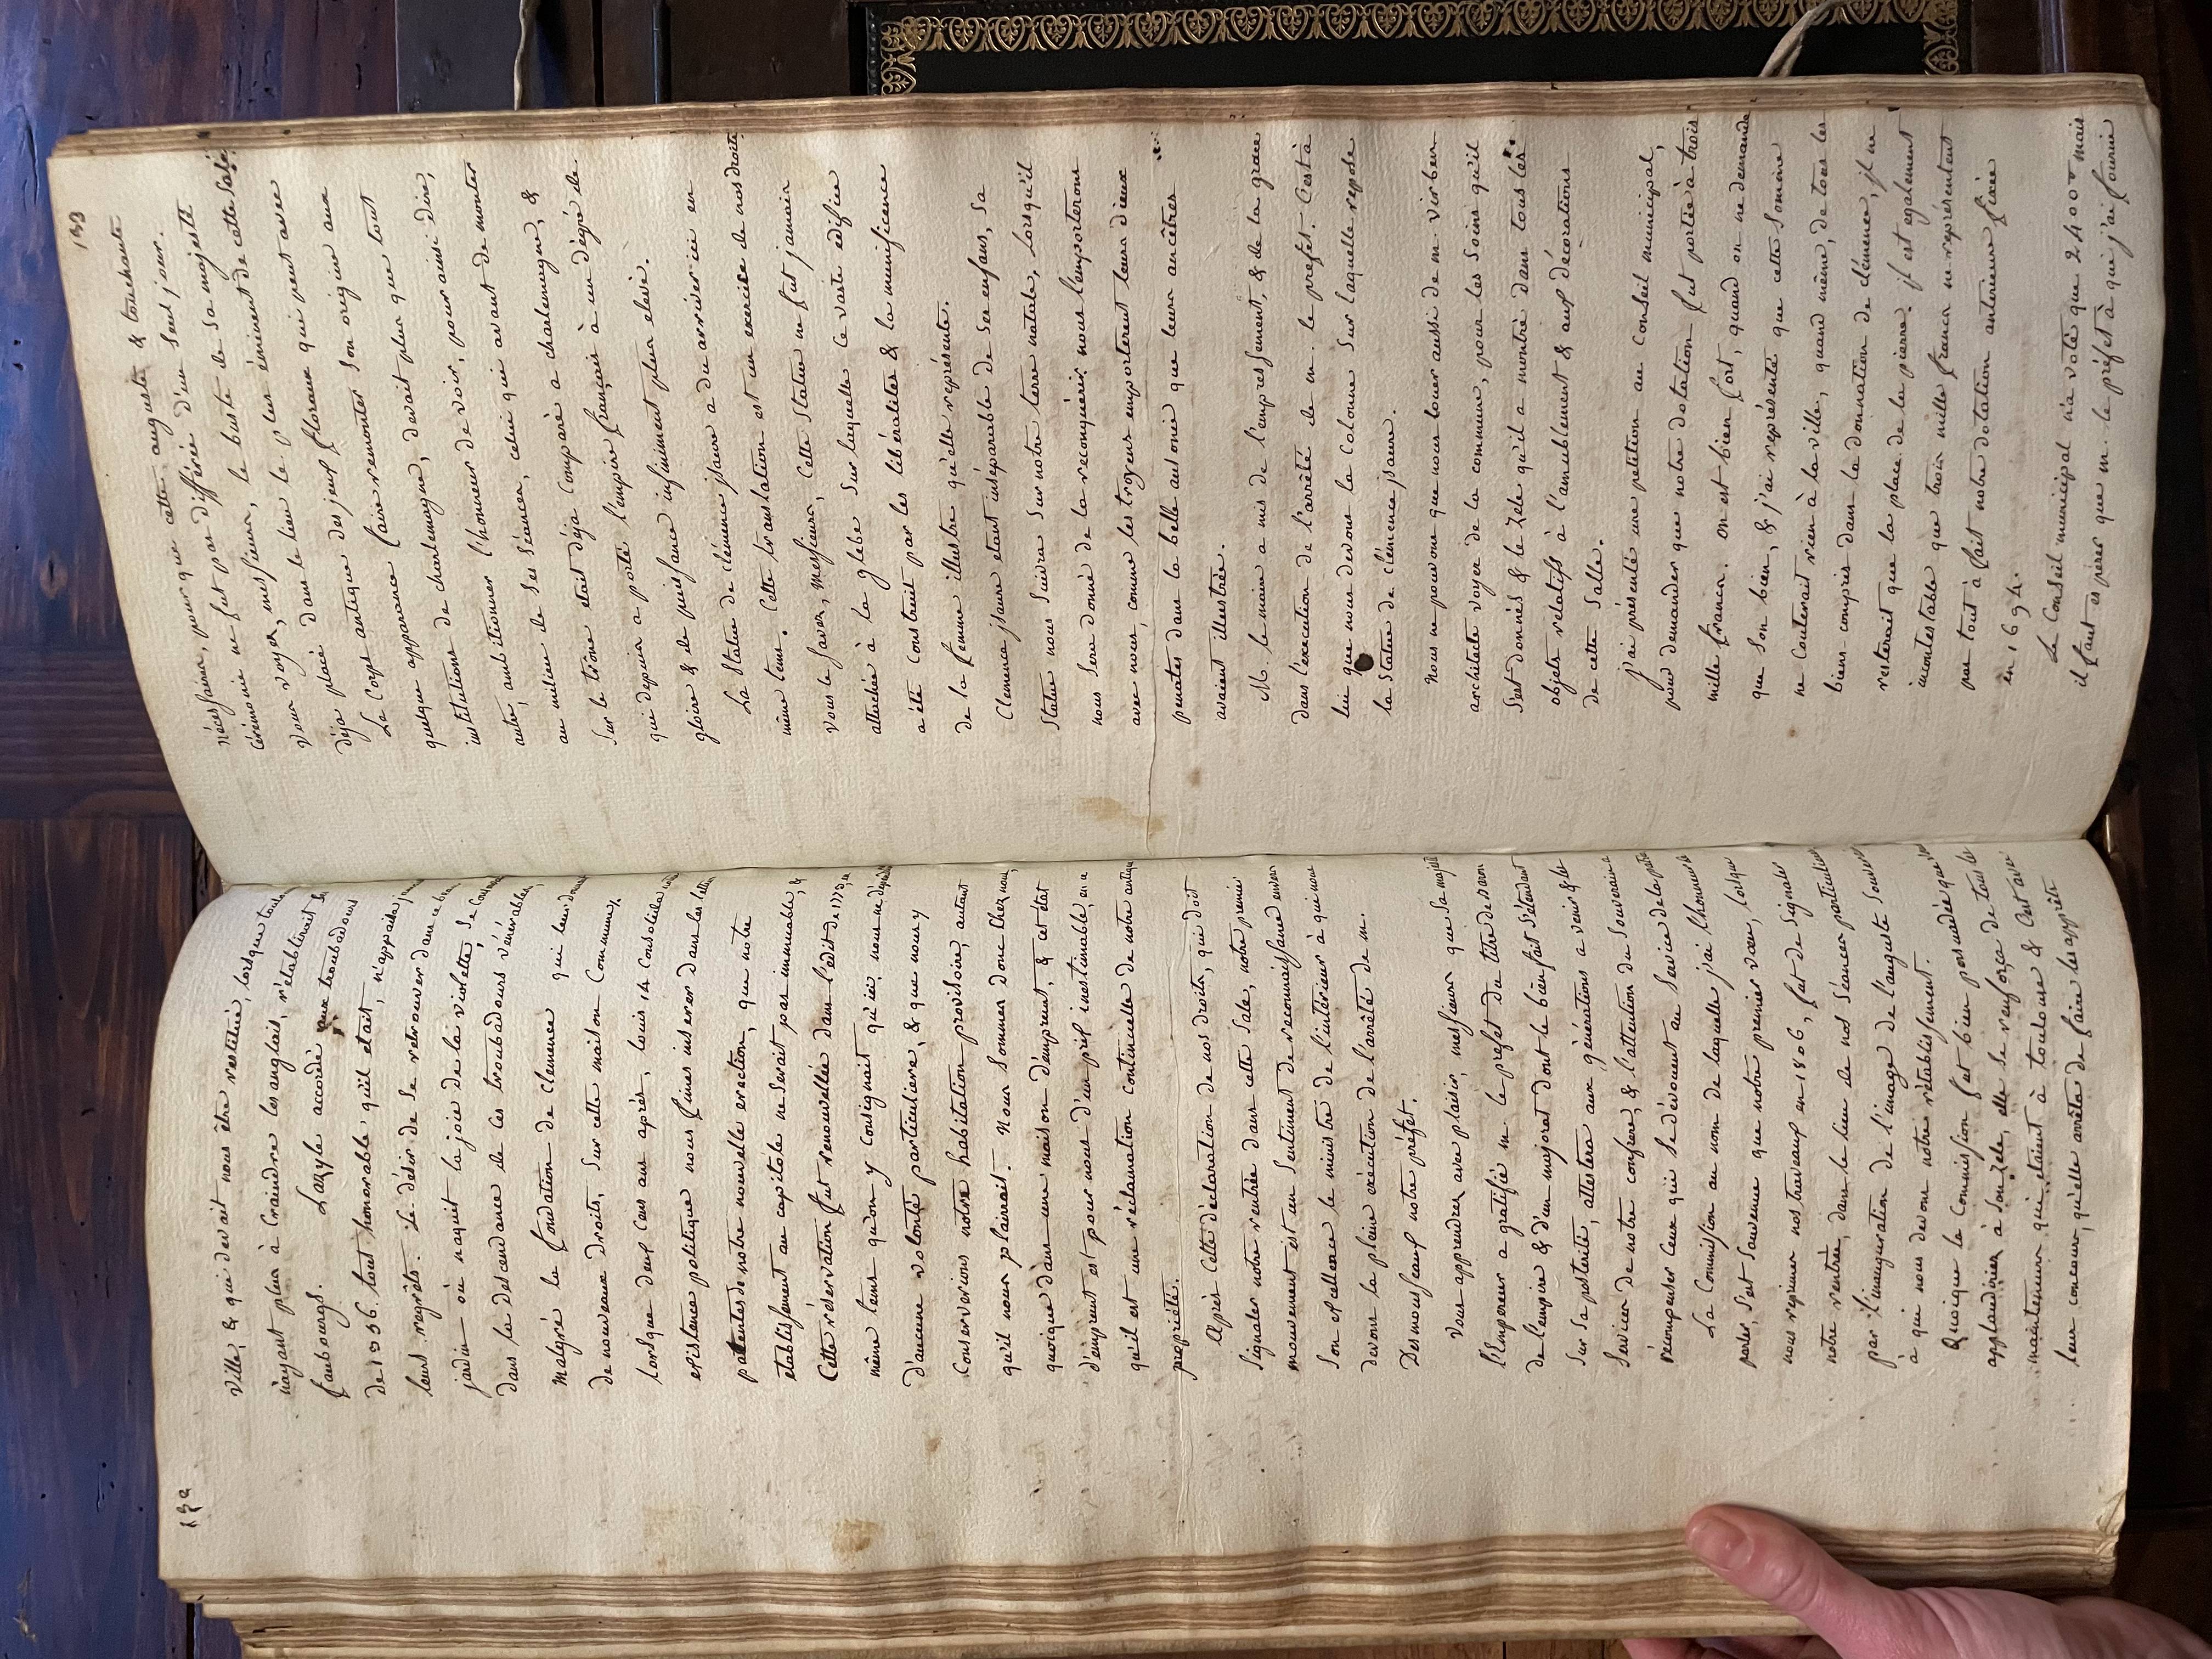 132
ville, & qui devait nous être restitué, lorsque
n'ayant plus à Craindre les anglais, rétablirait
faubourgs. Lazyle accordé aux troubadours
de 1356. tout honorable, qu'il etait, n'appaisa
leurs regrêts. Le désir de se retrouver dans ce
jardin où naquit la joie de la violette, Se
dans la descendance de ces troubadours vénérables,
Malgré la fondation de Clemence qui leur
de nouveaux droits, Sur cette maison Commune,
lorsque deux Cens ans après, louis 14. Consolida
existence politique nous fimes inserer dans les
patentes de notre nouvelle erection, que notre
établissement au capitole ne Serait pas immuable, &
Cette réservation fut renouvellée dans l'édit de 1773,
même tems qu'on y Consignait qu'ici nous ne
d'aucune volonté particuliere, & que nous y
Conserverions notre habitation provisoire, autant
qu'il nous plairait. Nous Sommes donc Chez nous,
quoique dans une maison d'emprunt, & cet état
d'emprunt est pour nous d'un prix inestimable, en ce
qu'il est une réclamation continuelle de notre antique
propriété.
Après Cette déclaration de nos droits, qui doit
Signaler notre rentrée dans cette Sale, notre premier
mouvement est un Sentiment de reconnaissance envers
Son excellence le ministre de l'intérieur à qui nous
devons la pleine exécution de l'arrêté de m.
Desmousseaux notre préfet.
Vous apprendrez avec plaisir, messieurs que Sa majesté
l'Empereur a gratifié m. le prefet du titre de baron
de l'empire & d'un majorat dont le bienfait s'étendant
Sur Sa posterité, attestera aux générations a venir & les
Services de notre confrere, & l'attention du Souverain
récompenser Ceux qui Se dévouent au Service de la patrie
La Commission au nom de laquelle j'ai l'honneur de
parler, S'est Souvenue que notre premier vœu, lorsque
nous reprimes nos travaux en 1806, fut de Signaler
notre rentrée, dans le lieu de nos Séances particulieres
par l'inauguration de l'image de l'auguste Souverain
à qui nous devons notre rétablissement.
Quoique la Commission fut bien persuadée que
applaudiriez à Son Zele, elle Se renforça de tous les
mainteneurs qui étaient à toulouse & C'est avec
leur concours, qu'elle arrêta de faire les apprêts
133
nécessaires, pour que cette auguste & touchante
cérémonie ne fut pas différée d'un Seul jour.
Vous voyez, messieurs, le buste de Sa majesté
déja placé dans le lieu le plus éminent de cette Sale.
Le Corps antique des jeux floraux qui peut avec
quelque apparence faire remonter Son origine aux
institutions de charlemagne, devait plus que tout
autre, ambitionner l'honneur de voir, pour ainsi dire,
au milieu de Ses Séances, celui qui avant de monter
Sur le trône était déja Comparé a charlemagne, &
qui depuis a porté l'empire français à un dégré de
gloire & de puissance infiniment plus élevé.
La Statue de Clémence jsaure a du arriver ici en
même tems. Cette translation est un exercice de nos droits
vous le Savez, Messieurs, Cette Statue ne fut jamais
attachée à la glebe Sur laquelle Ce vaste édifice
a été Construit par les libéralités & la munificence
de la femme illustre qu'elle représente.
Clemence jsaure etant inséparable de Ses enfans, Sa
Statue nous Suivra Sur notre terre natale, lorsqu'il
nous Sera donné de la reconquérir. nous l'emporterons
avec nous, comme les troyens emporterent leurs dieux
penates dans la belle ausonie que leurs ancêtres
avaient illustrée.
M. le maire a mis de l'empressement, & de la grace
dans l'execution de l'arrêté de m. le prefet. C'est à
lui que nous devons la Colonne Sur laquelle repose
la Statue de clémence jsaure.
Nous ne pouvons que nous louer aussi de m. virben
architecte voyer de la commune, pour les Soins qu'il
S'est donnés & le Zele qu'il a montré dans tous les
objets relatifs à l'ameublement & aux décorations
de cette Salle.
j'ai présenté une petition au Conseil municipal,
pour demander que notre dotation fut portée à trois
mille francs. on est bien fort, quand on ne demande
que Son bien, & j'ai représenté que cette Somme
ne Couterait rien à la ville, quand même, de tous les
biens compris dans la donnation de clémence, il ne
resterait que la place de la pierre. il est egalement
incontestable que trois mille francs ne représentent
pas tout à fait notre dotation antérieure fixée
en 1694.
Le Conseil municipal n'a voté que 2400.ᶠ mais
il faut espérer que m. le préfet à qui j'ai fourni